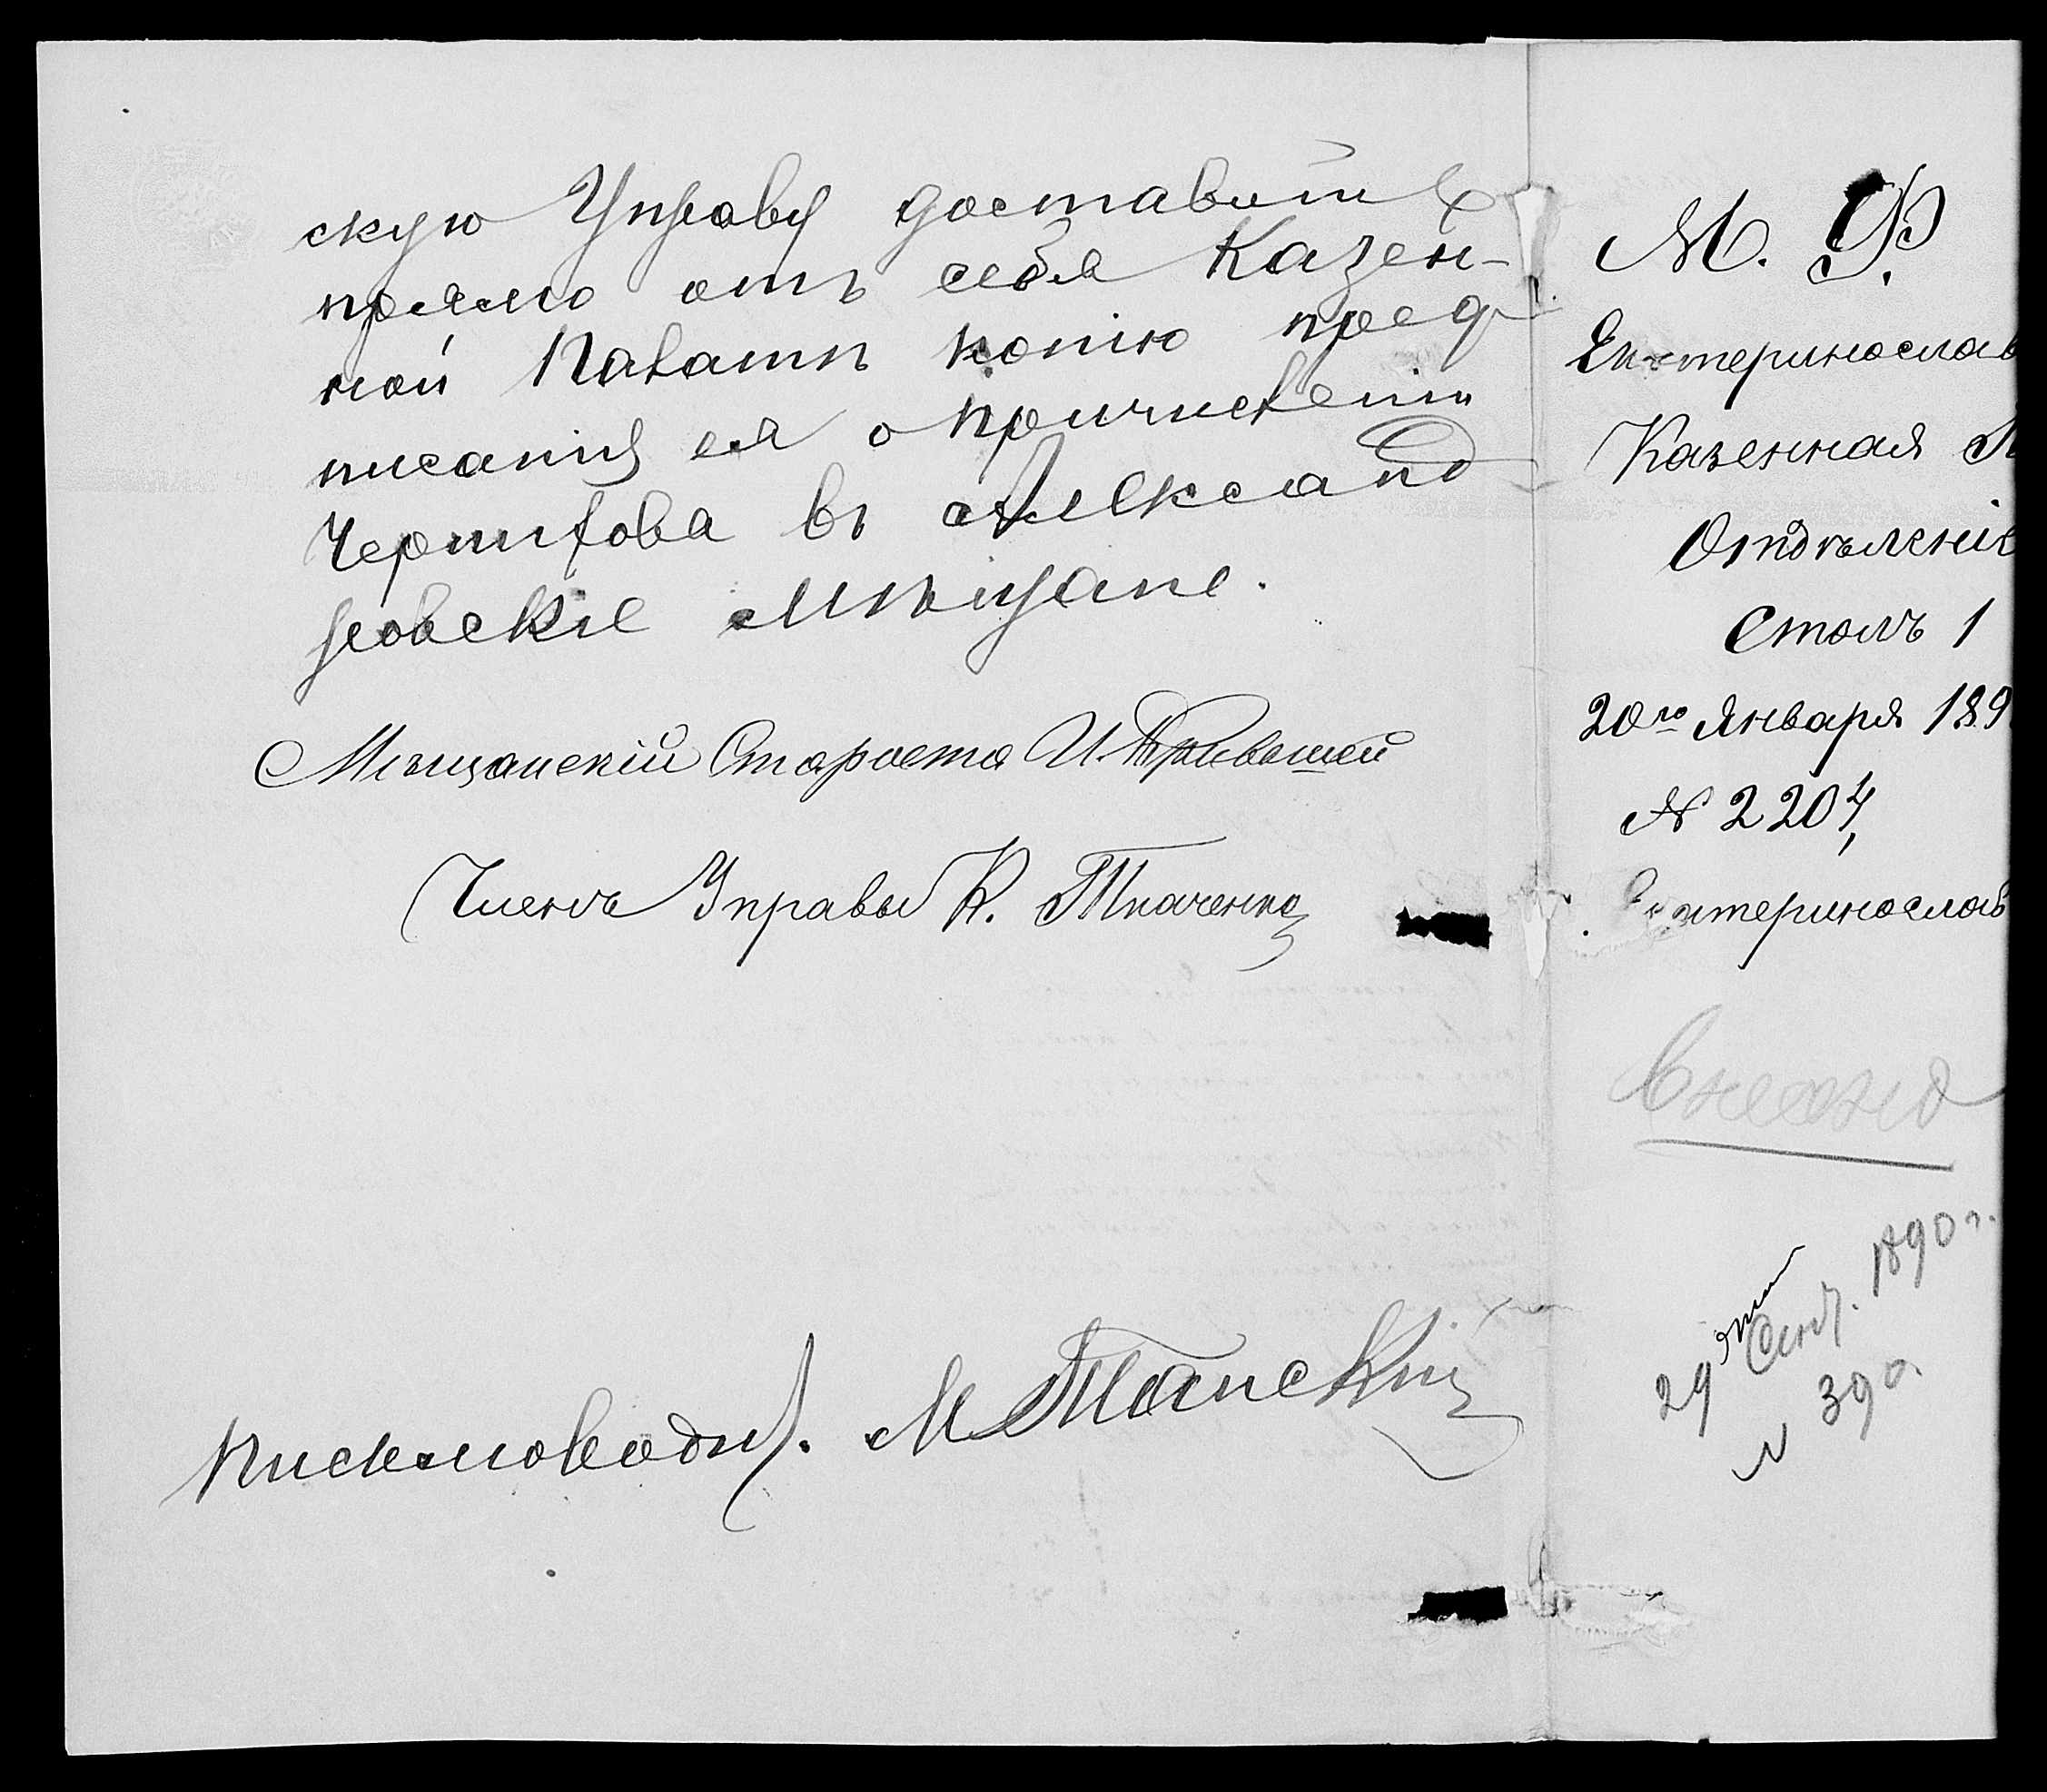 скую Управу доставить
прямо отъ себя Казен-
ной Палатѣ копію пред
писанія ея о причисленіи
въ Александ
ровскіе мѣщане.
Мѣщанскій Староста И.
Членъ Управы К. Ткаченко
Письмоводит. М
М. Ф.
Екатеринослав
Казенная П
Отдѣленіе
Столъ 1
20го Января 189
№ 2204
Екатеринослав
29 Сент. 1890 г.
№ 390.